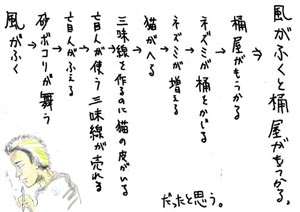 風がふくと桶屋がもうかる。
桶屋がもうかる
ネズミが桶をかじる
ネズミが増える
猫がへる
三味線を作るのに猫の皮がいる
盲人が使う三味線が売れる
盲人がふえる
砂ボコリが舞う
風がふく
だったと思う。